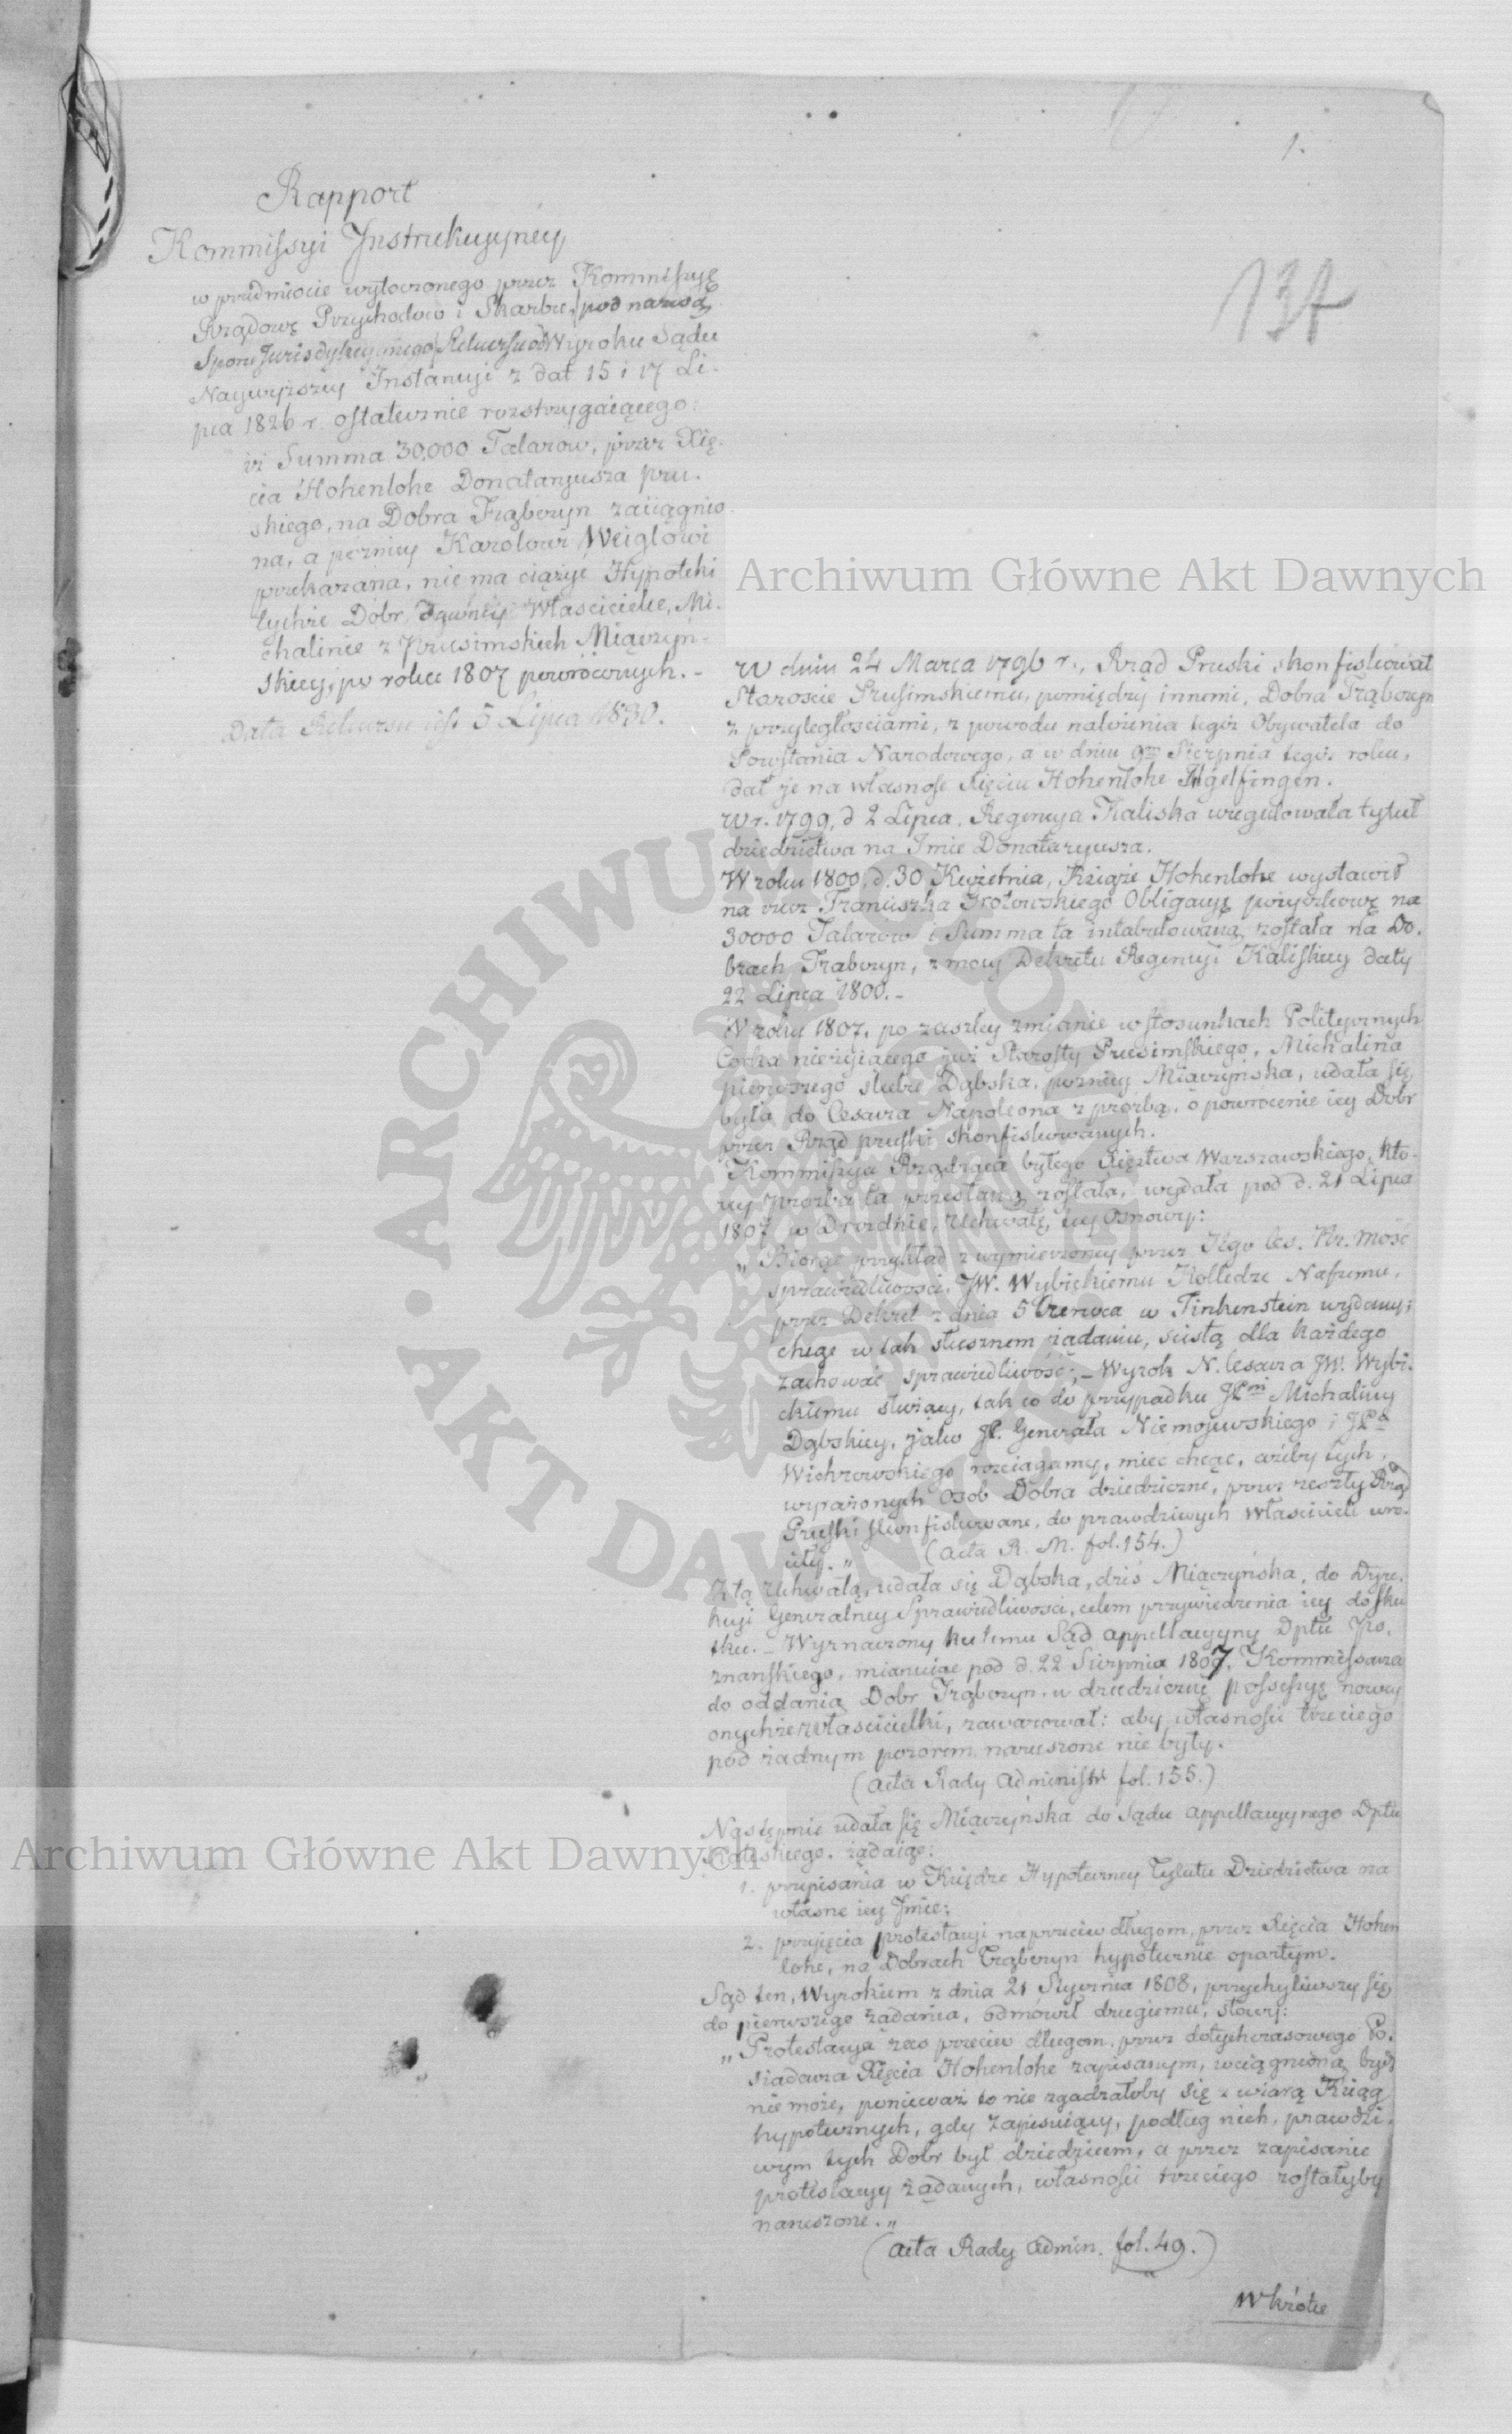 1.
137
Rapport
Kommissyi Instrukcyjney
w przedmiocie wytoczonego przez Kommissyę
Rządową Przychodow i Skarbu, pod nazwą
Sporu Jurisdykcyjnego, Rekursu od Wyroku Sądu
Naywyższey Instancyi z dat 15 i 17 Li-
pca 1826 r. ostatecznie rozstrzygaiącego:
iż Summa 30,000 Talarow, przez Xię-
cia Hohenlohe Donataryusza pru-
skiego, na Dobra Trąbczyn zaciągnio-
na, a pozniey Karolowi Weiglowi
przekazana, nie ma ciążyć Hypoteki
tychże Dobr, dawney Właścicielce, Mi-
chalinie z Prusimskich Miączyń-
skiey, po roku 1807 powroconych. -
Data Rekursu jest 5 Lipca 1830.
W dniu 24 Marca 1796 r., Rząd Pruski skonfiskował
Staroscie Prusimskiemu, pomiędzy innemi, Dobra Trąbczyn
z przyległosciami, z powodu należenia tegoż Obywatela do
Powstania Narodowego, a w dniu 9m Sierpnia tegoż roku,
dał je na własnosc Xięciu Hohenlohe Ingelfingen.
W r. 1799, d 2 Lipca, Regencya Kaliska uregulowała tytuł
dziedzictwa na Imie Donataryusza.
W roku 1800, d. 30 Kwietnia, Książe Hohenlohe wystawił
na rzecz Franciszka Grotowskiego Obligacyę pożyczkową na
30000 Talarow i Summa ta intabulowaną została na Do-
brach Trąbczyn, z mocy Dekretu Regencyi Kaliskiey daty
22 Lipca 1800. -
W roku 1807, po zaszłey zmianie w stosunkach Politycznych
Corka nieżyiącego już Starosty Prusimskiego, Michalina
pierwszego slubu Dąbska, pozniey Miączyńska, udała się
była do Cesarza Napoleona z prożbą, o powrocenie iey Dobr
przez Rząd pruski skonfiskowanych.
Kommissya Rządząca byłego Xięztwa Warszawskiego, kto-
rey prozba ta przesłaną została, wydała pod d. 21 Lipca
1807 w Dreznie, Uchwałę, tey Osnowy:
„Biorąc przykład z wymierzoney przez Jego Ces. Kr. Mość
sprawiedliwosci, JW. Wybickiemu Kolledze Naszemu,
przez Dekret z dnia 5 Czerwca w Finkenstein wydany;
chcąc w tak słusznem żądaniu, scisłą dla każdego
zachować sprawiedliwość; - Wyrok N. Cesarza JW. Wybi-
ckiemu służący, tak co do przypadku JPni Michaliny
Dąbskiey, jako JP. Generała Niemojewskiego i JPa
Wichrowskiego rozciągamy, mieć chcąc, ażeby tych,
wyrażonych Osob Dobra dziedziczne, przez zeszły Rząd
Pruski skonfiskowane, do prawdziwych Właścicieli wro-
ciły. „ (Acta R. M. fol. 154.)
Z tą Uchwałą, udała się Dąbska, dziś Miączyńska, do Dyre-
kcyi Generalney Sprawiedliwosci, celem przywiedzenia iey do sku-
tku. - Wyznaczony ku temu Sąd appellacyjny Dptu Po-
znańskiego, mianuiąc pod d. 22 Sierpnia 1807, Kommissarza
do oddania Dobr Trąbczyn w dziedziczną possessyę nowey
onychże właścicielki, zawarował: aby własności trzeciego
pod żadnym pozorem naruszone nie były.
(Acta Rady Administr. fol. 155.)
Następnie udała się Miączyńska do Sądu appellacyjnego Dptu
żądaiąc:
1. przepisania w Księdze Hypoteczney Tytułu Dziedzictwa na
własne iey Imie;
2. przyięcia protestacyi naprzeciw długom, przez Xięcia Hohen
lohe, na Dobrach Trąbczyn hypotecznie opartym.
Sąd ten, Wyrokiem z dnia 21 Stycznia 1808, przychyliwszy się
do pierwszego żądania, odmówił drugiemu, słowy:
„Protestacya zas przeciw długom, przez dotychczasowego Po-
siadacza Xięcia Hohenlohe zapisanym, wciągnioną być
nie może, ponieważ to nie zgadzałoby się z wiarą Ksiąg
hypotecznych, gdy zapisuiący, podług nich, prawdzi-
wym tych Dobr był dziedzicem, a przez zapisanie
protestacyy żądanych, własności trzeciego zostałyby
naruszone. „
(Acta Rady Admin. fol. 49.)
Wkrótce
Archiwum Główne Akt Dawnych
Archiwum Główne Akt Dawnych
ARCHIWUM GŁÓWNE
AKT DAWNYCH